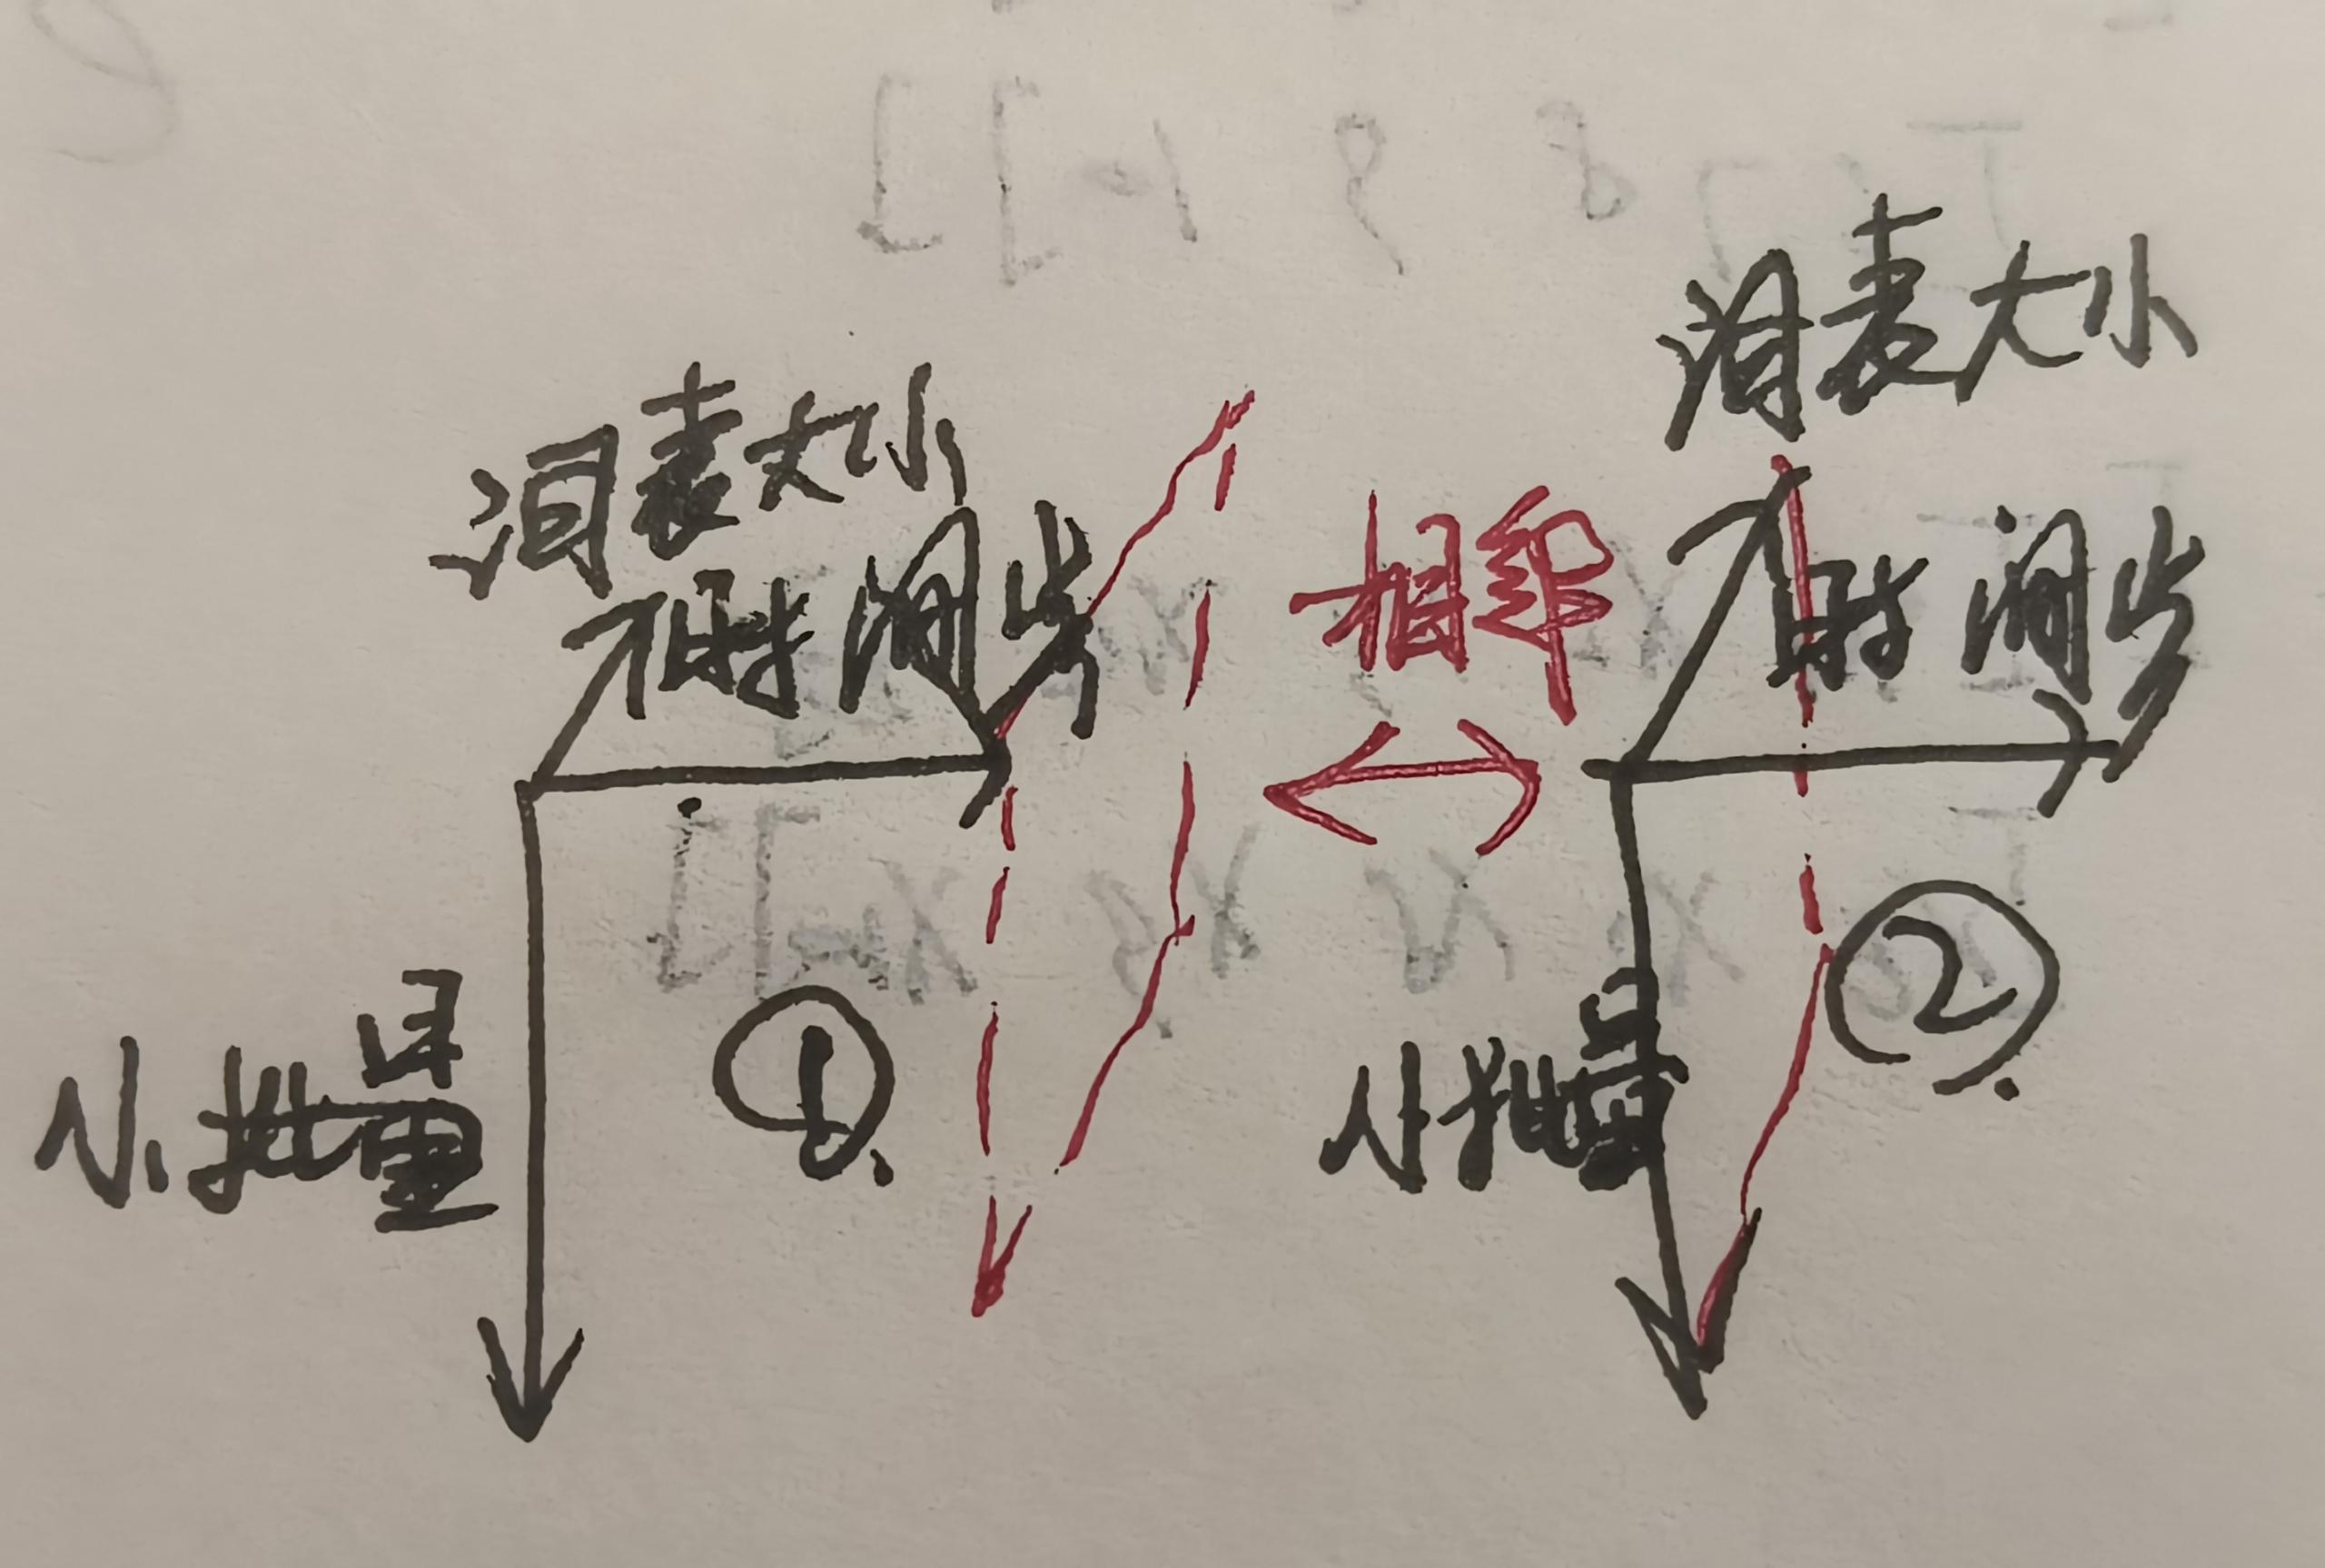 词表大小
时间步
小批量
①
相邻
词表大小
时间步
小批量
②